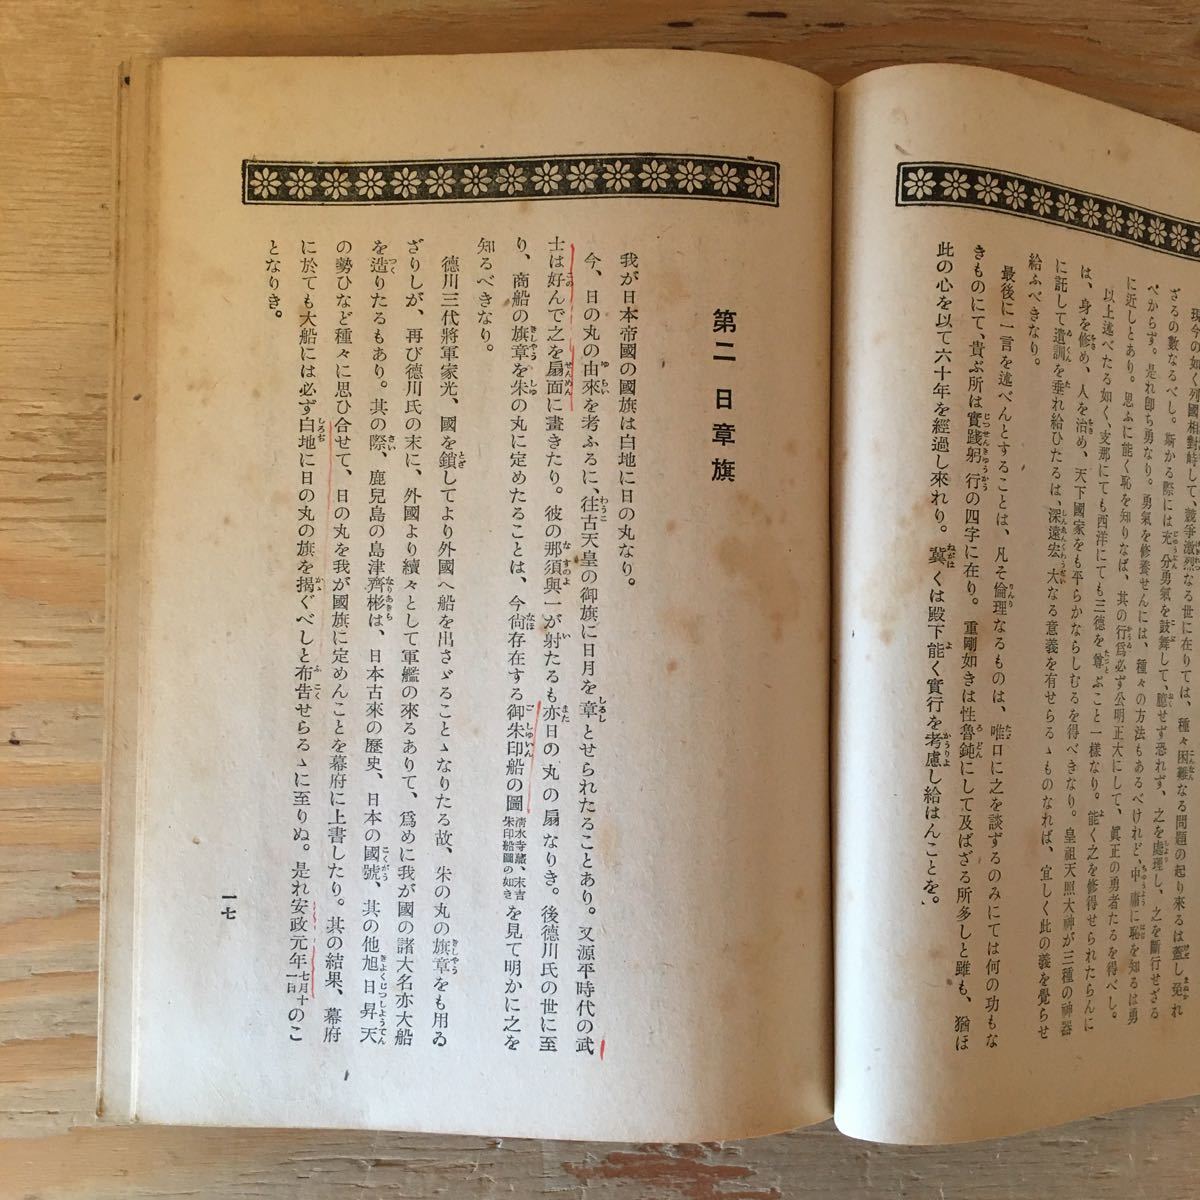 現今の如く列國相對峙して、競爭激烈なる世に在りては、種々困難なる問題の起り來るは蓋し免れ
ざるの數なるべし。斯かる際には充分勇氣を鼓舞して、臆せず恐れず、之を處理し、之を斷行せざる
べからず。是れ卽ち勇なり。勇氣を修養せんには、種々の方法もあるべけれど、中庸に恥を知るは勇
に近しとあり。思ふに能く恥を知りなば、其の行爲必ず公明正大にして、眞正の勇者たるを得べし。
以上述べたる如く、支那にても西洋にても三德を尊ぶこと一樣なり。能く之を修得せられたらんに
は、身を修め、人を治め、天下國家をも平らかならしむるを得べきなり。皇祖天照大神が三種の神器
に託して遺訓を垂れ給ひたるは、深遠宏大なる意義を有せらるゝものなれば、宜しく此の義を覺らせ
給ふべきなり。
最後に一言を述べんとすることは、凡そ倫理なるものは、唯口に之を談ずるのみにては何の功もな
きものにて、貴ぶ所は實踐躬行の四字に在り。重剛如きは性魯鈍にして及ばざる所多しと雖も、猶ほ
此の心を以て六十年を經過し來れり。冀くは殿下能く實行を考慮し給はんことを。
第二　日章旗
我が日本帝國の國旗は白地に日の丸なり。
今、日の丸の由來を考ふるに、往古天皇の御旗に日月を章とせられたることあり。又源平時代の武
士は好んで之を扇面に畫きたり。彼の那須與一が射たるも亦日の丸の扇なりき。後德川氏の世に至
り、商船の旗章を朱の丸に定めたることは、今尙存在する御朱印船の圖淸水寺藏、末吉朱印船圖の如きを見て明かに之を
知るべきなり。
德川三代將軍家光、國を鎖してより外國へ船を出さゞることゝなりたる故、朱の丸の旗章をも用ゐ
ざりしが、再び德川氏の末に、外國より續々として軍艦の來るありて、爲めに我が國の諸大名亦大船
を造りたるもあり。其の際、鹿兒島の島津齊彬は、日本古來の歷史、日本の國號、其の他旭日昇天
の勢ひなど種々に思ひ合せて、日の丸を我が國旗に定めんことを幕府に上書したり。其の結果、幕府
に於ても大船には必ず白地に日の丸の旗を揭ぐべしと布吿せらるゝに至りぬ。是れ安政元年七月十一日のこ
となりき。
一七